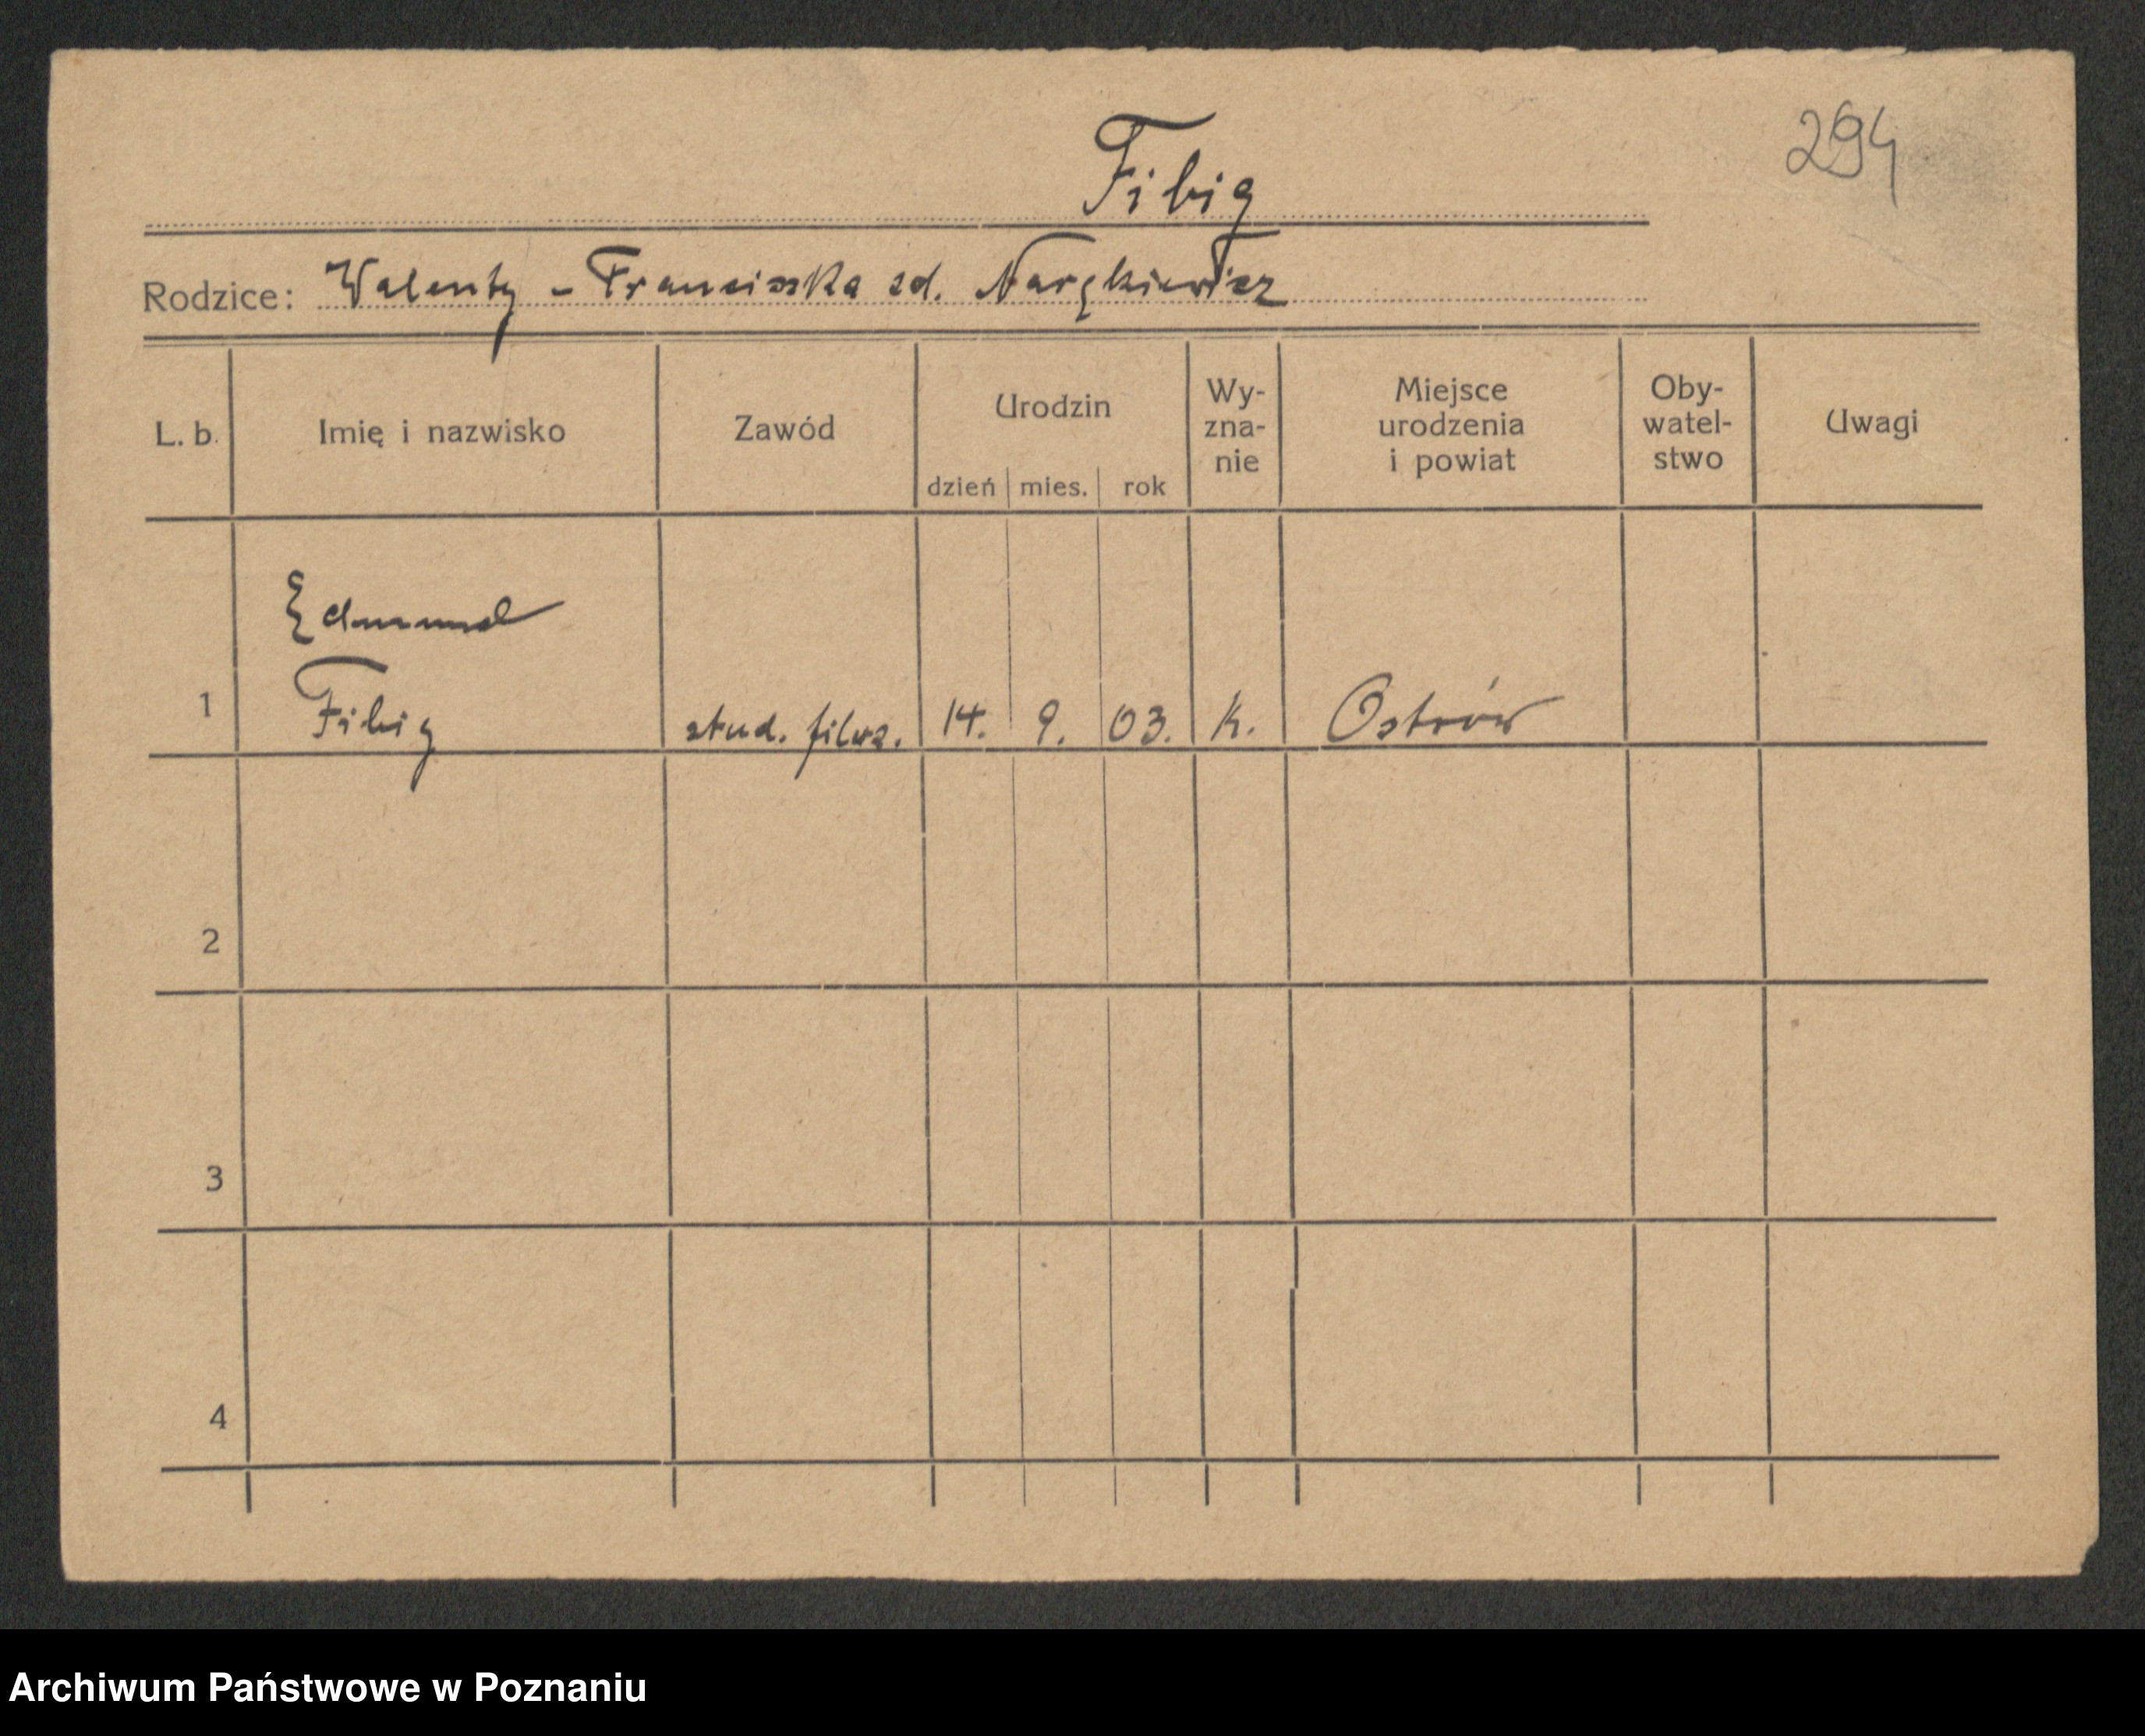 294
Fibig
Rodzice: Walenty – Franciszka zd.
L. b. Imię i nazwisko Zawód Urodzin dzień mies. rok Wy-zna-nie Miejsce urodzenia i powiat Oby-watel-stwo Uwagi
Edmund
1 Fibig stud. filoz. 14. 9. 03. k. Ostrów
2
3
4
Archiwum Państwowe w Poznaniu